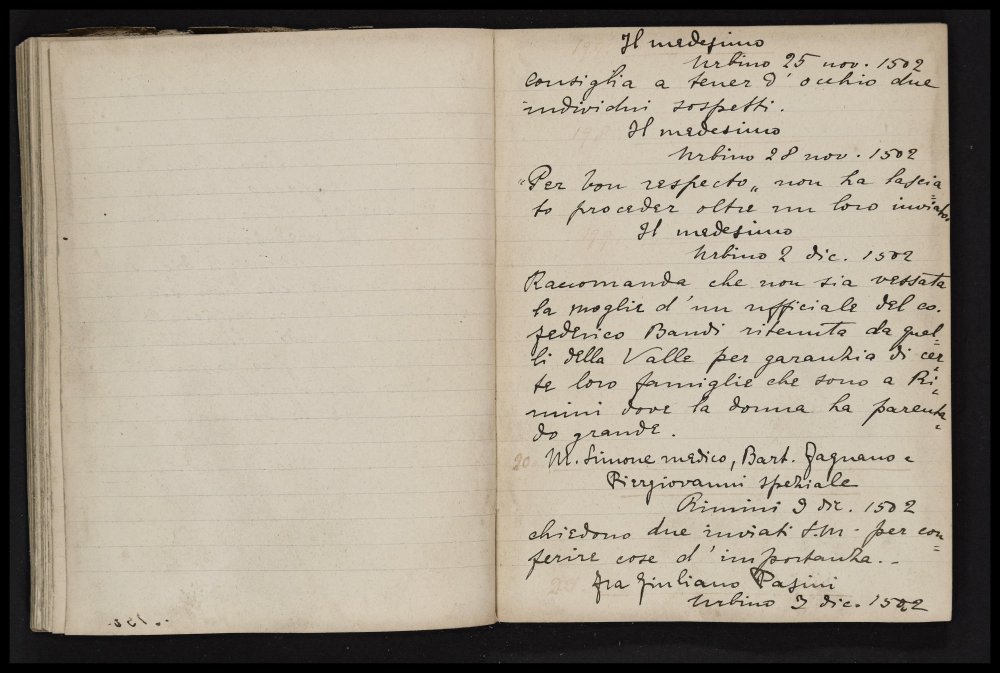 Il medesimo
Urbino 25 nov. 1502
consiglia a tener d'occhio due
individui sospetti.
Il medesimo
Urbino 28 nov. 1502
"Per bon respecto„ non ha lascia=
to proceder oltre un loro inviato.
Il medesimo
Urbino 2 dic. 1502
Raccomanda che non sia vessata
la moglie d'un ufficiale del co.
Federico Bandi ritenuta da quel=
li della Valle per garanzia di cer=
te loro famiglie che sono a Ri=
mini dove la donna ha parenta=
do grande.
M. Simone medico, Bart. Fagnano e
Piergiovanni speziale
Rimini 3 dic. 1502
chiedono due inviati S.M. per con=
ferire cose d'importanza..
Fra Giuliano Pasini
Urbino 3 dic. 1502